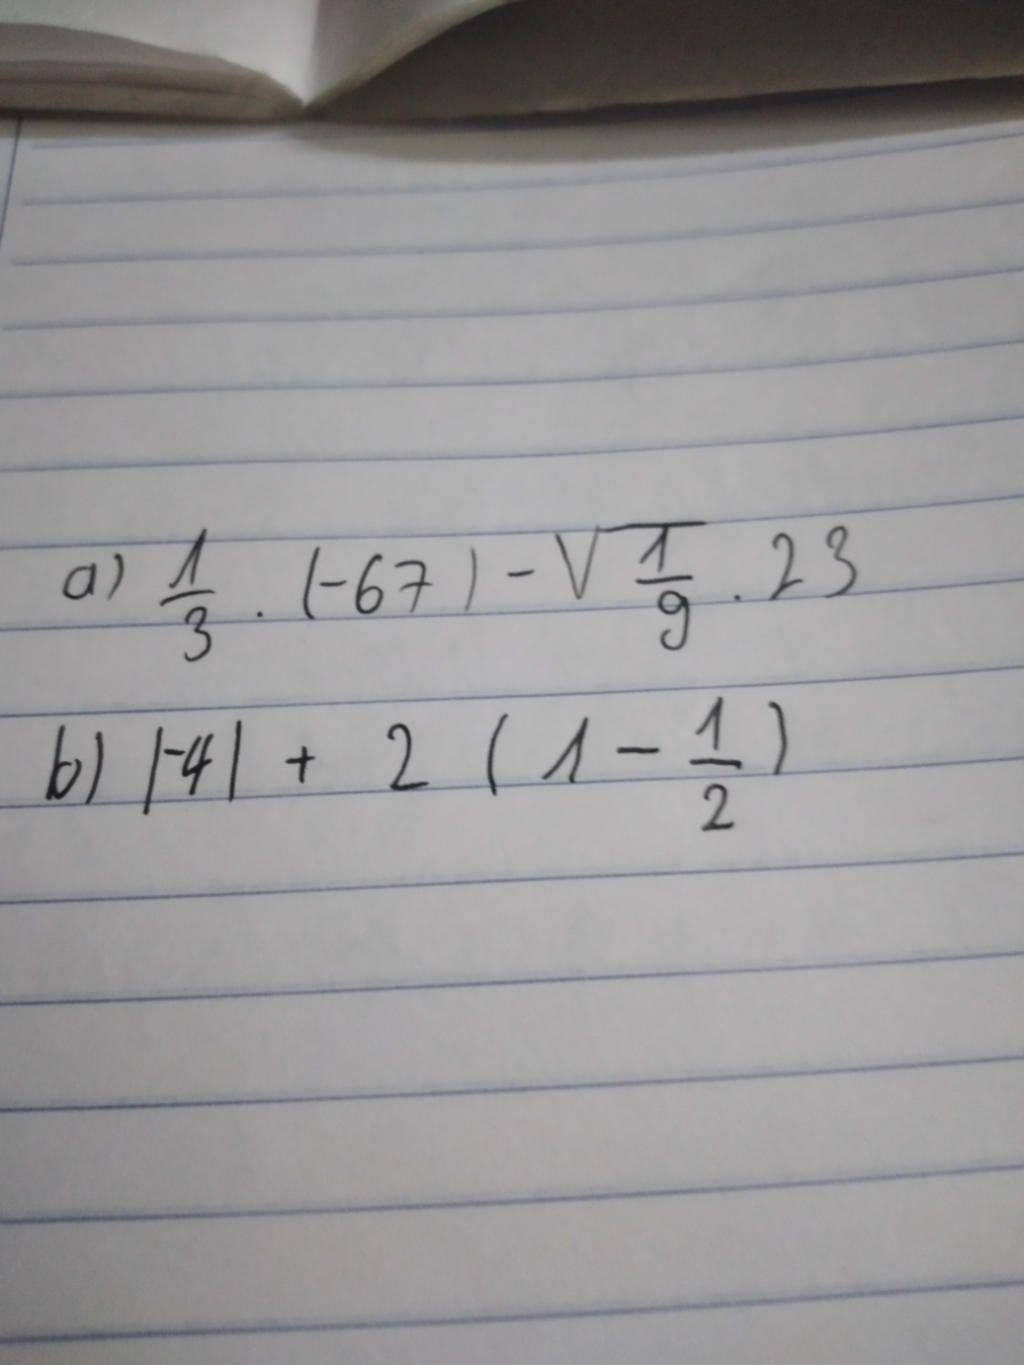 a) 1/3 . (-67) - √(1/9) . 23
b) |-4| + 2 (1 - 1/2)